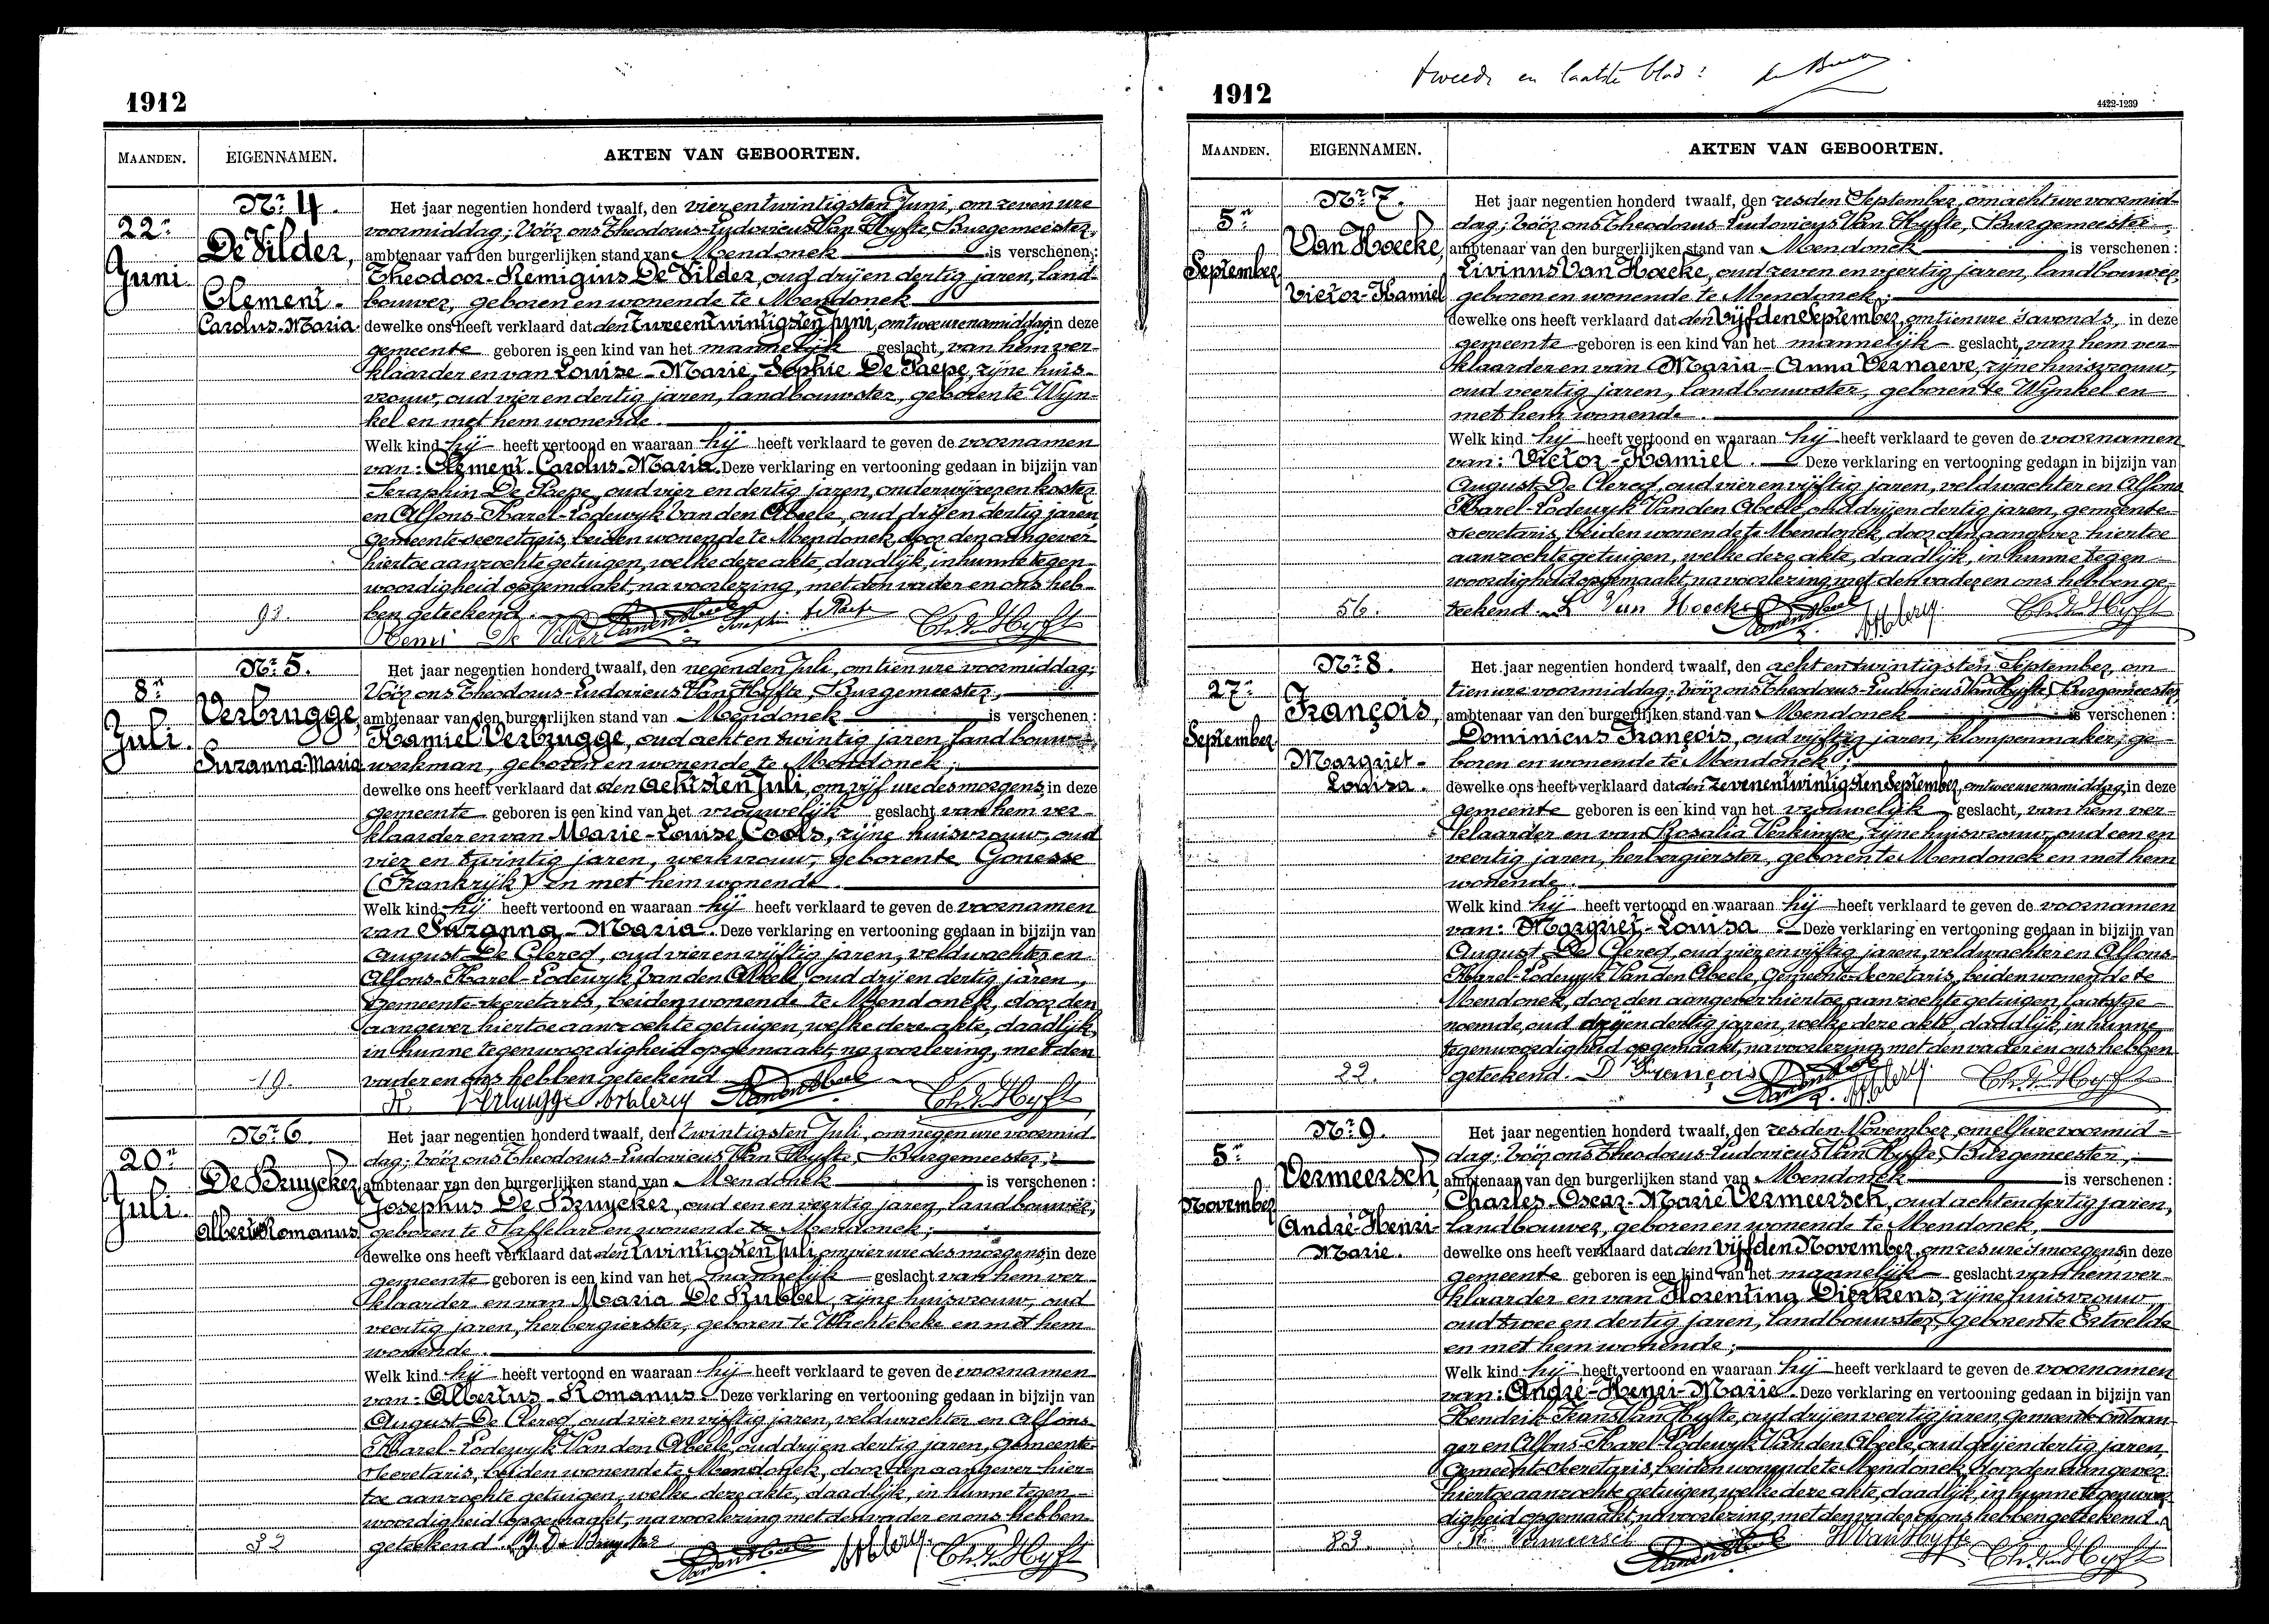 1912
MAANDEN.
EIGENNAMEN.
AKTEN VAN GEBOORTEN.
22n
Juni.
Nr 4.
De Vilder,
Clement-
Carolus-Maria.
93.
Het jaar negentien honderd twaalf, den vier en twintigsten Juni, om zeven ure
voormiddag; Vóór ons Theodorus-Ludovicus Van Hyfte, Burgemeester,
ambtenaar van den burgerlijken stand van Mendonck is verschenen:
Theodoor-Remigius De Vilder, oud drij en dertig jaren, land-
bouwer, geboren en wonende te Mendonck
dewelke ons heeft verklaard dat den tweeentwintigsten Juni, om twee ure namiddag, in deze
gemeente geboren is een kind van het mannelijk geslacht, van hem ver-
klaarder en van Louise-Marie-Sophie De Paepe, zijne huis-
vrouw, oud vier en dertig jaren, landbouwster, geboren te Wyn-
kel en met hem wonende.
Welk kind hij heeft vertoond en waaraan hij heeft verklaard te geven de voornamen
van: Clement-Carolus-Maria. Deze verklaring en vertooning gedaan in bijzijn van
Seraphin De Paepe, oud vier en dertig jaren, onderwijzer en koster
en Alfons-Karel-Lodewyk Van den Abeele, oud drij en dertig jaren,
gemeente-secretaris, beiden wonende te Mendonck, door den aangever
hiertoe aanzochte getuigen, welke deze akte, daadlijk, in hunne tegen-
woordigheid opgemaakt, na voorlezing, met den vader en ons heb-
ben geteekend.
8n
Juli.
Nr 5.
Verbrugge,
Suzanna-Maria
19.
Het jaar negentien honderd twaalf, den negenden Juli, om tien ure voormiddag;
Vóór ons Theodorus-Ludovicus Van Hyfte, Burgemeester,
ambtenaar van den burgerlijken stand van Mendonck is verschenen:
Kamiel Verbrugge, oud acht en twintig jaren, landbouw-
werkman, geboren en wonende te Mendonck;
dewelke ons heeft verklaard dat den achtsten Juli, om vijf ure des morgens, in deze
gemeente geboren is een kind van het vrouwelijk geslacht van hem ver-
klaarder en van Marie-Louise Cools, zijne huisvrouw, oud
vier en twintig jaren, werkvrouw, geboren te Gonesse
(Frankrijk) en met hem wonende.
Welk kind hij heeft vertoond en waaraan hij heeft verklaard te geven de voornamen
van Suzanna-Maria. Deze verklaring en vertooning gedaan in bijzijn van
August De Clercq, oud vier en vijftig jaren, veldwachter en
Alfons-Karel-Lodewyk Van den Abeele, oud drij en dertig jaren,
Gemeente-secretaris, beiden wonende te Mendonck, door den
aangever hiertoe aanzochte getuigen, welke deze akte, daadlijk,
in hunne tegenwoordigheid opgemaakt, na voorlezing, met den
vader en ons hebben geteekend.
20n
Juli.
Nr 6.
De Bruycker,
Albert-Romanus
32
Het jaar negentien honderd twaalf, den twintigsten Juli, om negen ure voormid-
dag; Vóór ons Theodorus-Ludovicus Van Hyfte, Burgemeester,
ambtenaar van den burgerlijken stand van Mendonck is verschenen:
Josephus De Bruycker, oud een en veertig jaren, landbouwer,
geboren te Saffelare en wonende te Mendonck;
dewelke ons heeft verklaard dat den twintigsten Juli, om vier ure des morgens, in deze
gemeente geboren is een kind van het mannelijk geslacht van hem ver-
klaarder en van Maria De Kubbel, zijne huisvrouw, oud
veertig jaren, herbergierster, geboren te Wachtebeke en met hem
wonende.
Welk kind hij heeft vertoond en waaraan hij heeft verklaard te geven de voornamen
van: Albertus-Romanus Deze verklaring en vertooning gedaan in bijzijn van
August De Clercq, oud vier en vijftig jaren, veldwachter en Alfons-
Karel-Lodewyk Van den Abeele, oud drij en dertig jaren, gemeente-
Secretaris, beiden wonende te Mendonck, door den aangever hier-
toe aanzochte getuigen, welke deze akte, daadlijk, in hunne tegen-
woordigheid opgemaakt, na voorlezing met den vader en ons hebben
geteekend.
1912
tweede en laatste blad:
4422-1239
MAANDEN.
EIGENNAMEN.
AKTEN VAN GEBOORTEN.
5n
September
Nr 7.
Van Hoecke,
Victor-Kamiel
56.
Het jaar negentien honderd twaalf, den zesden September, om acht ure voormid-
dag; Vóór ons Theodorus-Ludovicus Van Hyfte, Burgemeester,
ambtenaar van den burgerlijken stand van Mendonck is verschenen:
Livinus Van Hoecke, oud zeven en veertig jaren, landbouwer,
geboren en wonende te Mendonck;
dewelke ons heeft verklaard dat den Vijfden September, om tien ure 's avonds, in deze
gemeente geboren is een kind van het mannelijk geslacht, van hem ver-
klaarder en van Maria-Anna Vernaeve, zijne huisvrouw,
oud veertig jaren, landbouwster, geboren te Wynkel en
met hem wonende.
Welk kind hij heeft vertoond en waaraan hij heeft verklaard te geven de voornamen
van: Victor-Kamiel. Deze verklaring en vertooning gedaan in bijzijn van
August De Clercq, oud vier en vijftig jaren, veldwachter en Alfons
Karel-Lodewyk Van den Abeele, oud drij en dertig jaren, gemeente-
secretaris, beiden wonende te Mendonck, door den aangever hiertoe
aanzochte getuigen, welke deze akte, daadlijk, in hunne tegen-
woordigheid opgemaakt, na voorlezing met den vader en ons hebben ge-
teekend. L Van Hoecke
27n
September
Nr 8.
François,
Margriet-
Louisa.
22.
Het jaar negentien honderd twaalf, den acht en twintigsten September, om
tien ure voormiddag; Vóór ons Theodorus-Ludovicus Van Hyfte, Burgemeester,
ambtenaar van den burgerlijken stand van Mendonck is verschenen:
Dominicus François, oud vijftig jaren, klompenmaker, ge-
boren en wonende te Mendonck;
dewelke ons heeft verklaard dat den zevenentwintigsten September, om twee ure namiddag, in deze
gemeente geboren is een kind van het vrouwelijk geslacht, van hem ver-
klaarder en van Rosalia Verkimpe, zijne huisvrouw, oud een en
veertig jaren, herbergierster, geboren te Mendonck en met hem
wonende.
Welk kind hij heeft vertoond en waaraan hij heeft verklaard te geven de voornamen
van: Margriet-Louisa Deze verklaring en vertooning gedaan in bijzijn van
August De Clercq, oud vier en vijftig jaren, veldwachter en Alfons-
Karel-Lodewyk Van den Abeele, Gemeente-Secretaris, beiden wonende te
Mendonck, door den aangever hiertoe aanzochte getuigen, laatstge-
noemde oud drij en dertig jaren, welke deze akte, daadlijk, in hunne
tegenwoordigheid opgemaakt, na voorlezing met den vader en ons hebben
geteekend. D François
5n
November
Nr 9.
Vermeersch,
André-Henri-
Marie.
83.
Het jaar negentien honderd twaalf, den zesden November, om elf ure voormid-
dag; Vóór ons Theodorus-Ludovicus Van Hyfte, Burgemeester,
ambtenaar van den burgerlijken stand van Mendonck is verschenen:
Charles-Oscar-Marie Vermeersch, oud acht en dertig jaren,
landbouwer, geboren en wonende te Mendonck,
dewelke ons heeft verklaard dat den vijfden November, om zes ure 's morgens, in deze
gemeente geboren is een kind van het mannelijk geslacht van hem ver-
klaarder en van Florentina Dierkens, zijne huisvrouw
oud twee en dertig jaren, landbouwster, geboren te Ertvelde
en met hem wonende;
Welk kind hij heeft vertoond en waaraan hij heeft verklaard te geven de voornamen
van: André-Henri-Marie. Deze verklaring en vertooning gedaan in bijzijn van
Hendrik-Frans Van Hyfte, oud drij en veertig jaren, gemeente-ontvan-
ger en Alfons-Karel-Lodewyk Van den Abeele, oud drij en dertig jaren,
Gemeente-Secretaris, beiden wonende te Mendonck, door den aangever
hiertoe aanzochte getuigen, welke deze akte, daadlijk, in hunne tegenwoor-
digheid opgemaakt, na voorlezing, met den vader en ons hebben geteekend.
Vermeersch
H Van Hyfte